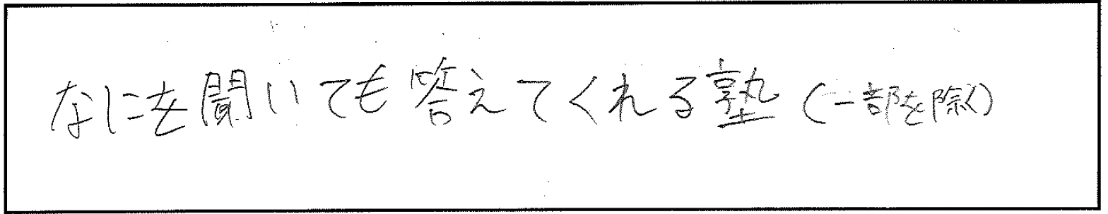 なにを聞いても答えてくれる塾(一部を除く)